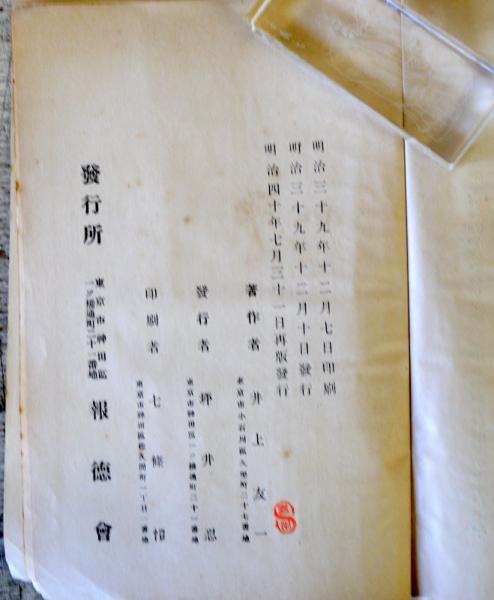 明治三十九年十二月七日印刷
明治三十九年十二月十日發行
明治四十年七月三十一日再版發行
東京市小石川區久堅町二十七番地
著作者 井上友一
東京市神田區一ツ橋通町二十一番地
發行者 坪井忍
東京市神田區
印刷者 七條愷
發行所 東京市神田區一ツ橋通町二十一番地 報德會